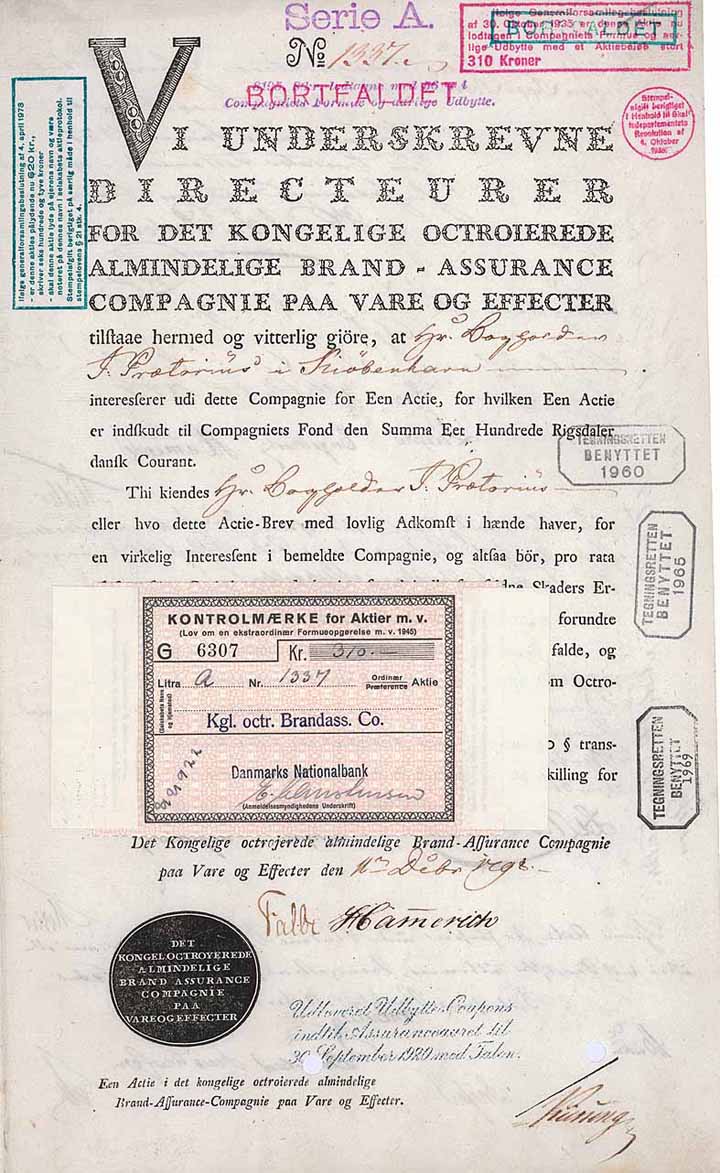 Serie A.
No 1337.
ifølge Generalforsamlingsbeslutning
af 30. Oktober 1935 er denne Aktie nu
lodtagen i Compagniets Formue og aar-
lige Udbytte med et Aktiebeløb stort
310 Kroner
BORTFALDET
BORTFALDET
Compagniets Formue og aarlige Udbytte.
Stempel-
afgift berigtiget
i Henhold til Skat-
tedepartementets
Resolution af
Oktober
Ifølge generalforsamlingsbeslutning af 4. april 1973
- er denne akties pålydende nu 620 kr.,
skriver seks hundrede og tyve kroner
- skal denne aktie lyde på ejerens navn og være
noteret på dennes navn i selskabets aktieprotokol.
Stempelafgift berigtiget på særlig måde i henhold til
stempelovens § 21 stk. 4
VI UNDERSKREVNE
DIRECTEURER
FOR DET KONGELIGE OCTROIEREDE
ALMINDELIGE BRAND-ASSURANCE
COMPAGNIE PAA VARE OG EFFECTER
tilstaae hermed og vitterlig giöre, at Hr. Bogholder
J. Prætorius i Kiöbenhavn
interesserer udi dette Compagnie for Een Actie, for hvilken Een Actie
er indskudt til Compagniets Fond den Summa Eet Hundrede Rigsdaler
dansk Courant.
TEGNINGSRETTEN
BENYTTET
1960
Thi kiendes Hr. Bogholder J. Prætorius
eller hvo dette Actie-Brev med lovlig Adkomst i hænde haver, for
en virkelig Interessent i bemeldte Compagnie, og altsaa bör, pro rata
Skaders Er-
forundte
falde, og
m Octro-
§ trans-
killing for
TEGNINGSRETTEN
BENYTTET
1965
TEGNINGSRETTEN
BENYTTET
1969
KONTROLMÆRKE for Aktier m. v.
(Lov om en ekstraordinær Formueopgørelse m. v. 1945)
G 6307 Kr. 310.-
Litra A Nr. 1337 Ordinær Præference Aktie
(Selskabets Navn og Hjemsted)
Kgl. octr. Brandass. Co.
Danmarks Nationalbank
(Anmeldelsesmyndighedens Underskrift)
Det Kongelige octrojerede almindelige Brand-Assurance Compagnie
paa Vare og Effecter den 11te Dcbr 
Falbe Hamerich
DET
KONGEL.OCTROYEREDE
ALMINDELIGE
BRAND ASSURANCE
COMPAGNIE
PAA
VARE OG EFFECTER
Udleveret Udbytte-Coupons
indtil Assuranceaaret til
30 September 1920 med Talon.
Een Actie i det kongelige octroierede almindelige
Brand-Assurance-Compagnie paa Vare og Effecter.